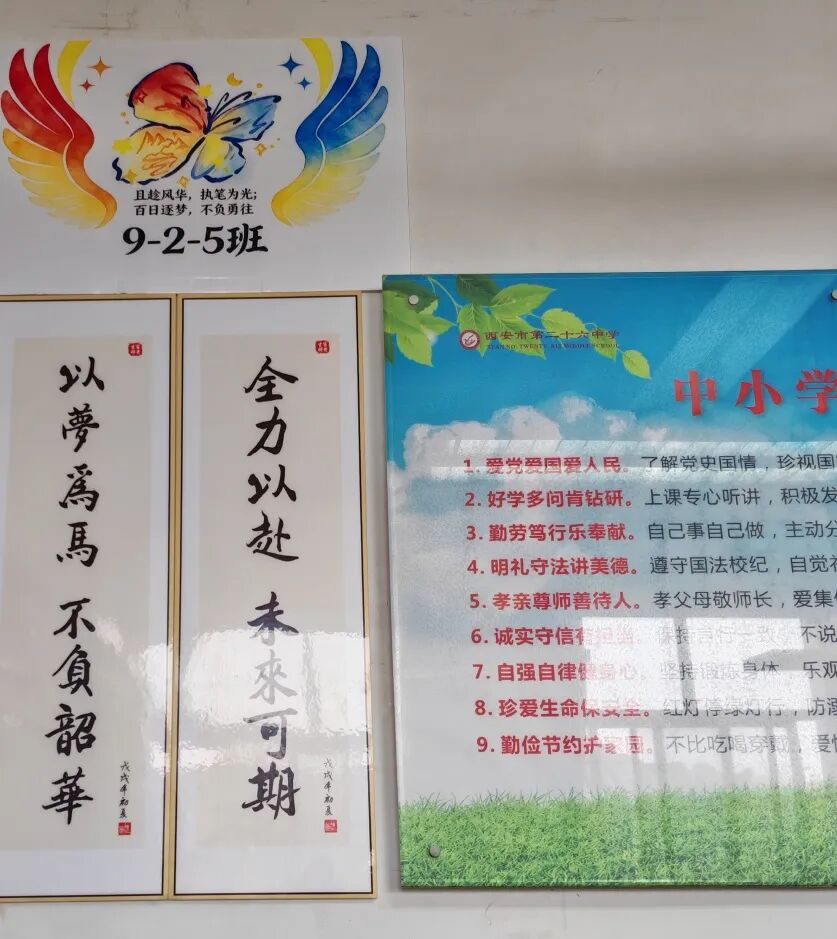 且趁风华，执笔为光；
百日逐梦，不负勇往
9-2-5班
全力以赴 未來可期
戊戌年初夏
以夢爲馬 不負韶華
戊戌年初夏
西安市第二十六中学
XI'AN NO. TWENTY-SIX MIDDLE SCHOOL
中小学
1. 爱党爱国爱人民。了解党史国情，珍视国
2. 好学多问肯钻研。上课专心听讲，积极发
3. 勤劳笃行乐奉献。自己事自己做，主动分
4. 明礼守法讲美德。遵守国法校纪，自觉礼
5. 孝亲尊师善待人。孝父母敬师长，爱集体
6. 诚实守信有担当。保持言行一致，不说
7. 自强自律健身心。坚持锻炼身体，乐观
8. 珍爱生命保安全。红灯停绿灯行，防溺
9. 勤俭节约护家园。不比吃喝穿戴，爱惜